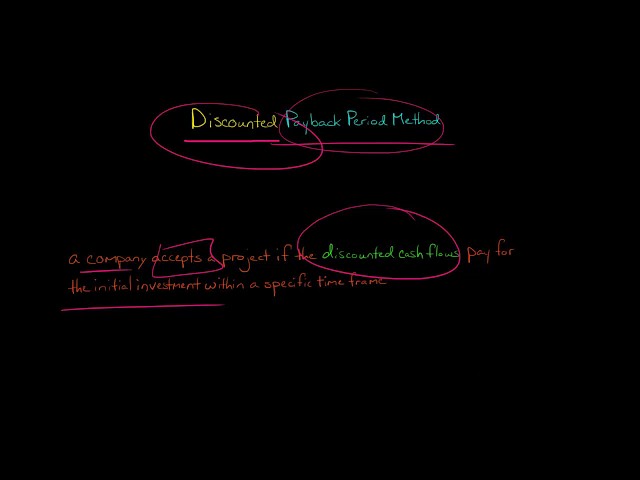 Discounted Payback Period Method
a company accepts a project if the discounted cash flows pay for
the initial investment within a specific time frame